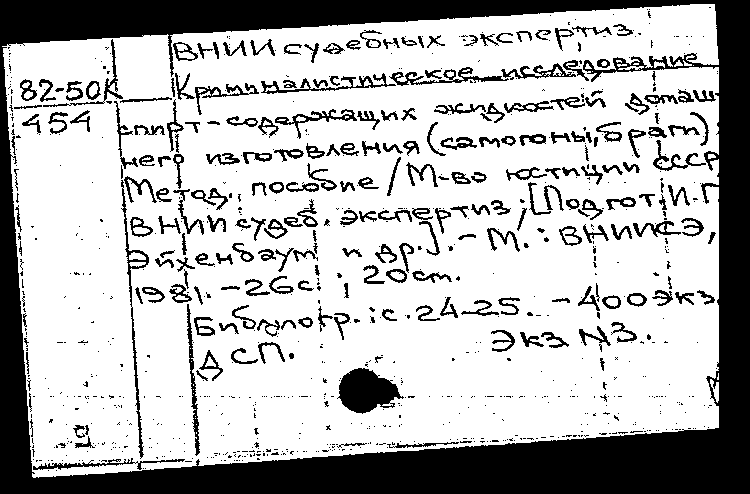 ВНИИ судебных экспертиз.
82-50К Криминалистическое исследование
454 спирт-содержащих жидкостей домаш-
него изготовления (самогоны, браги):
Метод. пособие / М-во юстиции СССР,
ВНИИ судеб. экспертиз; [Подгот. И.Г.
Эйхенбаум и др.]. - М.: ВНИИСЭ,
1981. - 26с. ; 20см.
Библиогр.: с. 24-25. - 400экз.
ДСП. Экз N3.